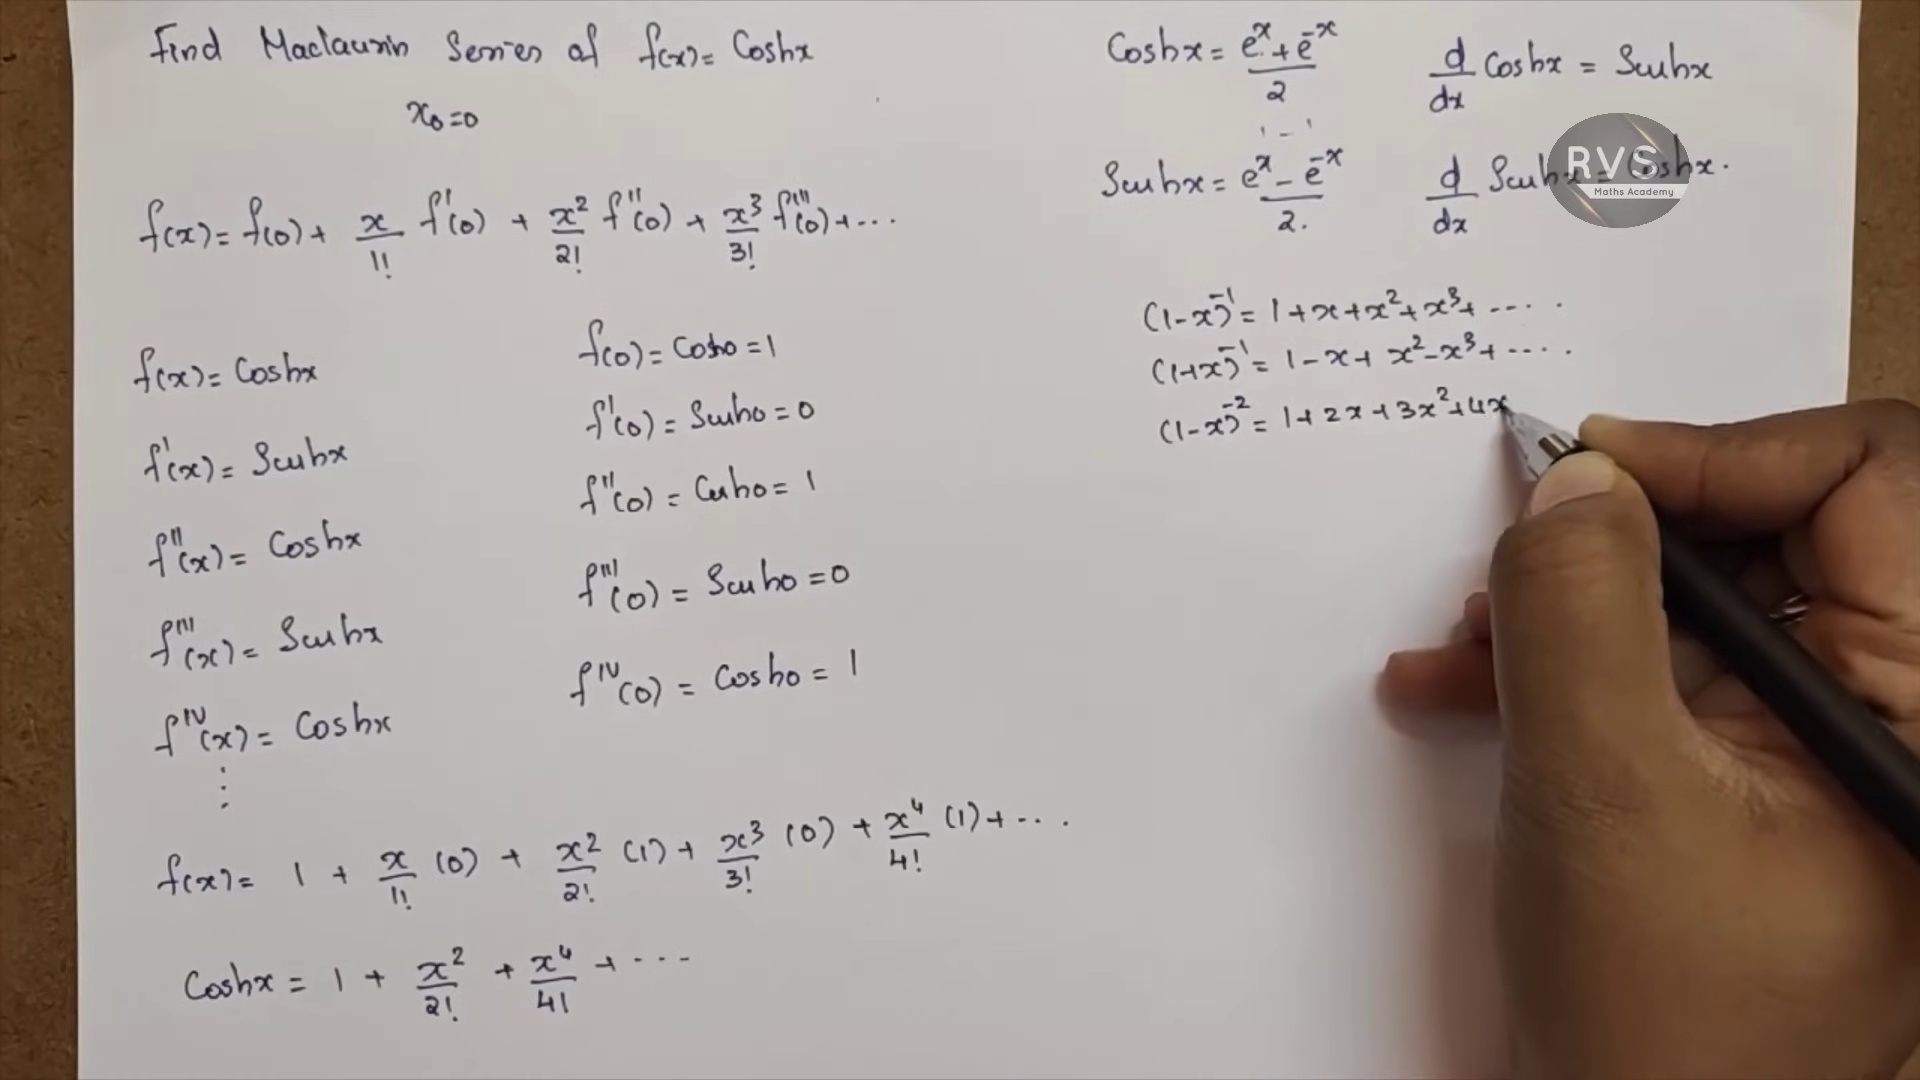 Find Maclaurin Series of f(x) = Coshx
x₀=0
f(x) = f(0) + x/1! f'(0) + x²/2! f''(0) + x³/3! f'''(0) + ...
f(x) = Coshx
f(0) = Cosh0 = 1
f'(x) = Sinhx
f'(0) = Sinh0 = 0
f''(x) = Coshx
f''(0) = Cosh0 = 1
f'''(x) = Sinhx
f'''(0) = Sinh0 = 0
f^IV(x) = Coshx
f^IV(0) = Cosh0 = 1
⋮
f(x) = 1 + x/1! (0) + x²/2! (1) + x³/3! (0) + x⁴/4! (1) + ...
Coshx = 1 + x²/2! + x⁴/4! + ...
Coshx = (e^x + e^-x)/2
d/dx Coshx = Sinhx
Sinhx = (e^x - e^-x)/2.
d/dx Sinhx = Coshx.
RVS
Maths Academy
(1-x)^-1 = 1 + x + x² + x³ + ....
(1+x)^-1 = 1 - x + x² - x³ + ....
(1-x)^-2 = 1 + 2x + 3x² + 4x